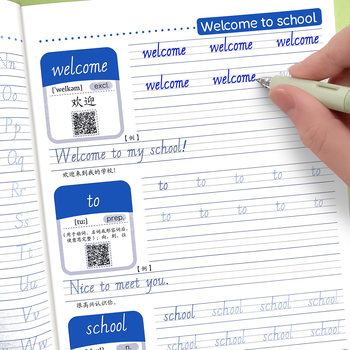 Welcome to school
welcome welcome welcome
welcome welcome
welcome
['welkəm] excl.
欢迎
【例】
Welcome to my school!
欢迎来到我的学校!
to
[tu:] prep.
to to to to
to to to to
【例】
Nice to meet you.
很高兴认识你。
school
school school school school
school school school school
n.
Nn
Oo
Pp
Qq
Rr
Ss
Tt
Uu